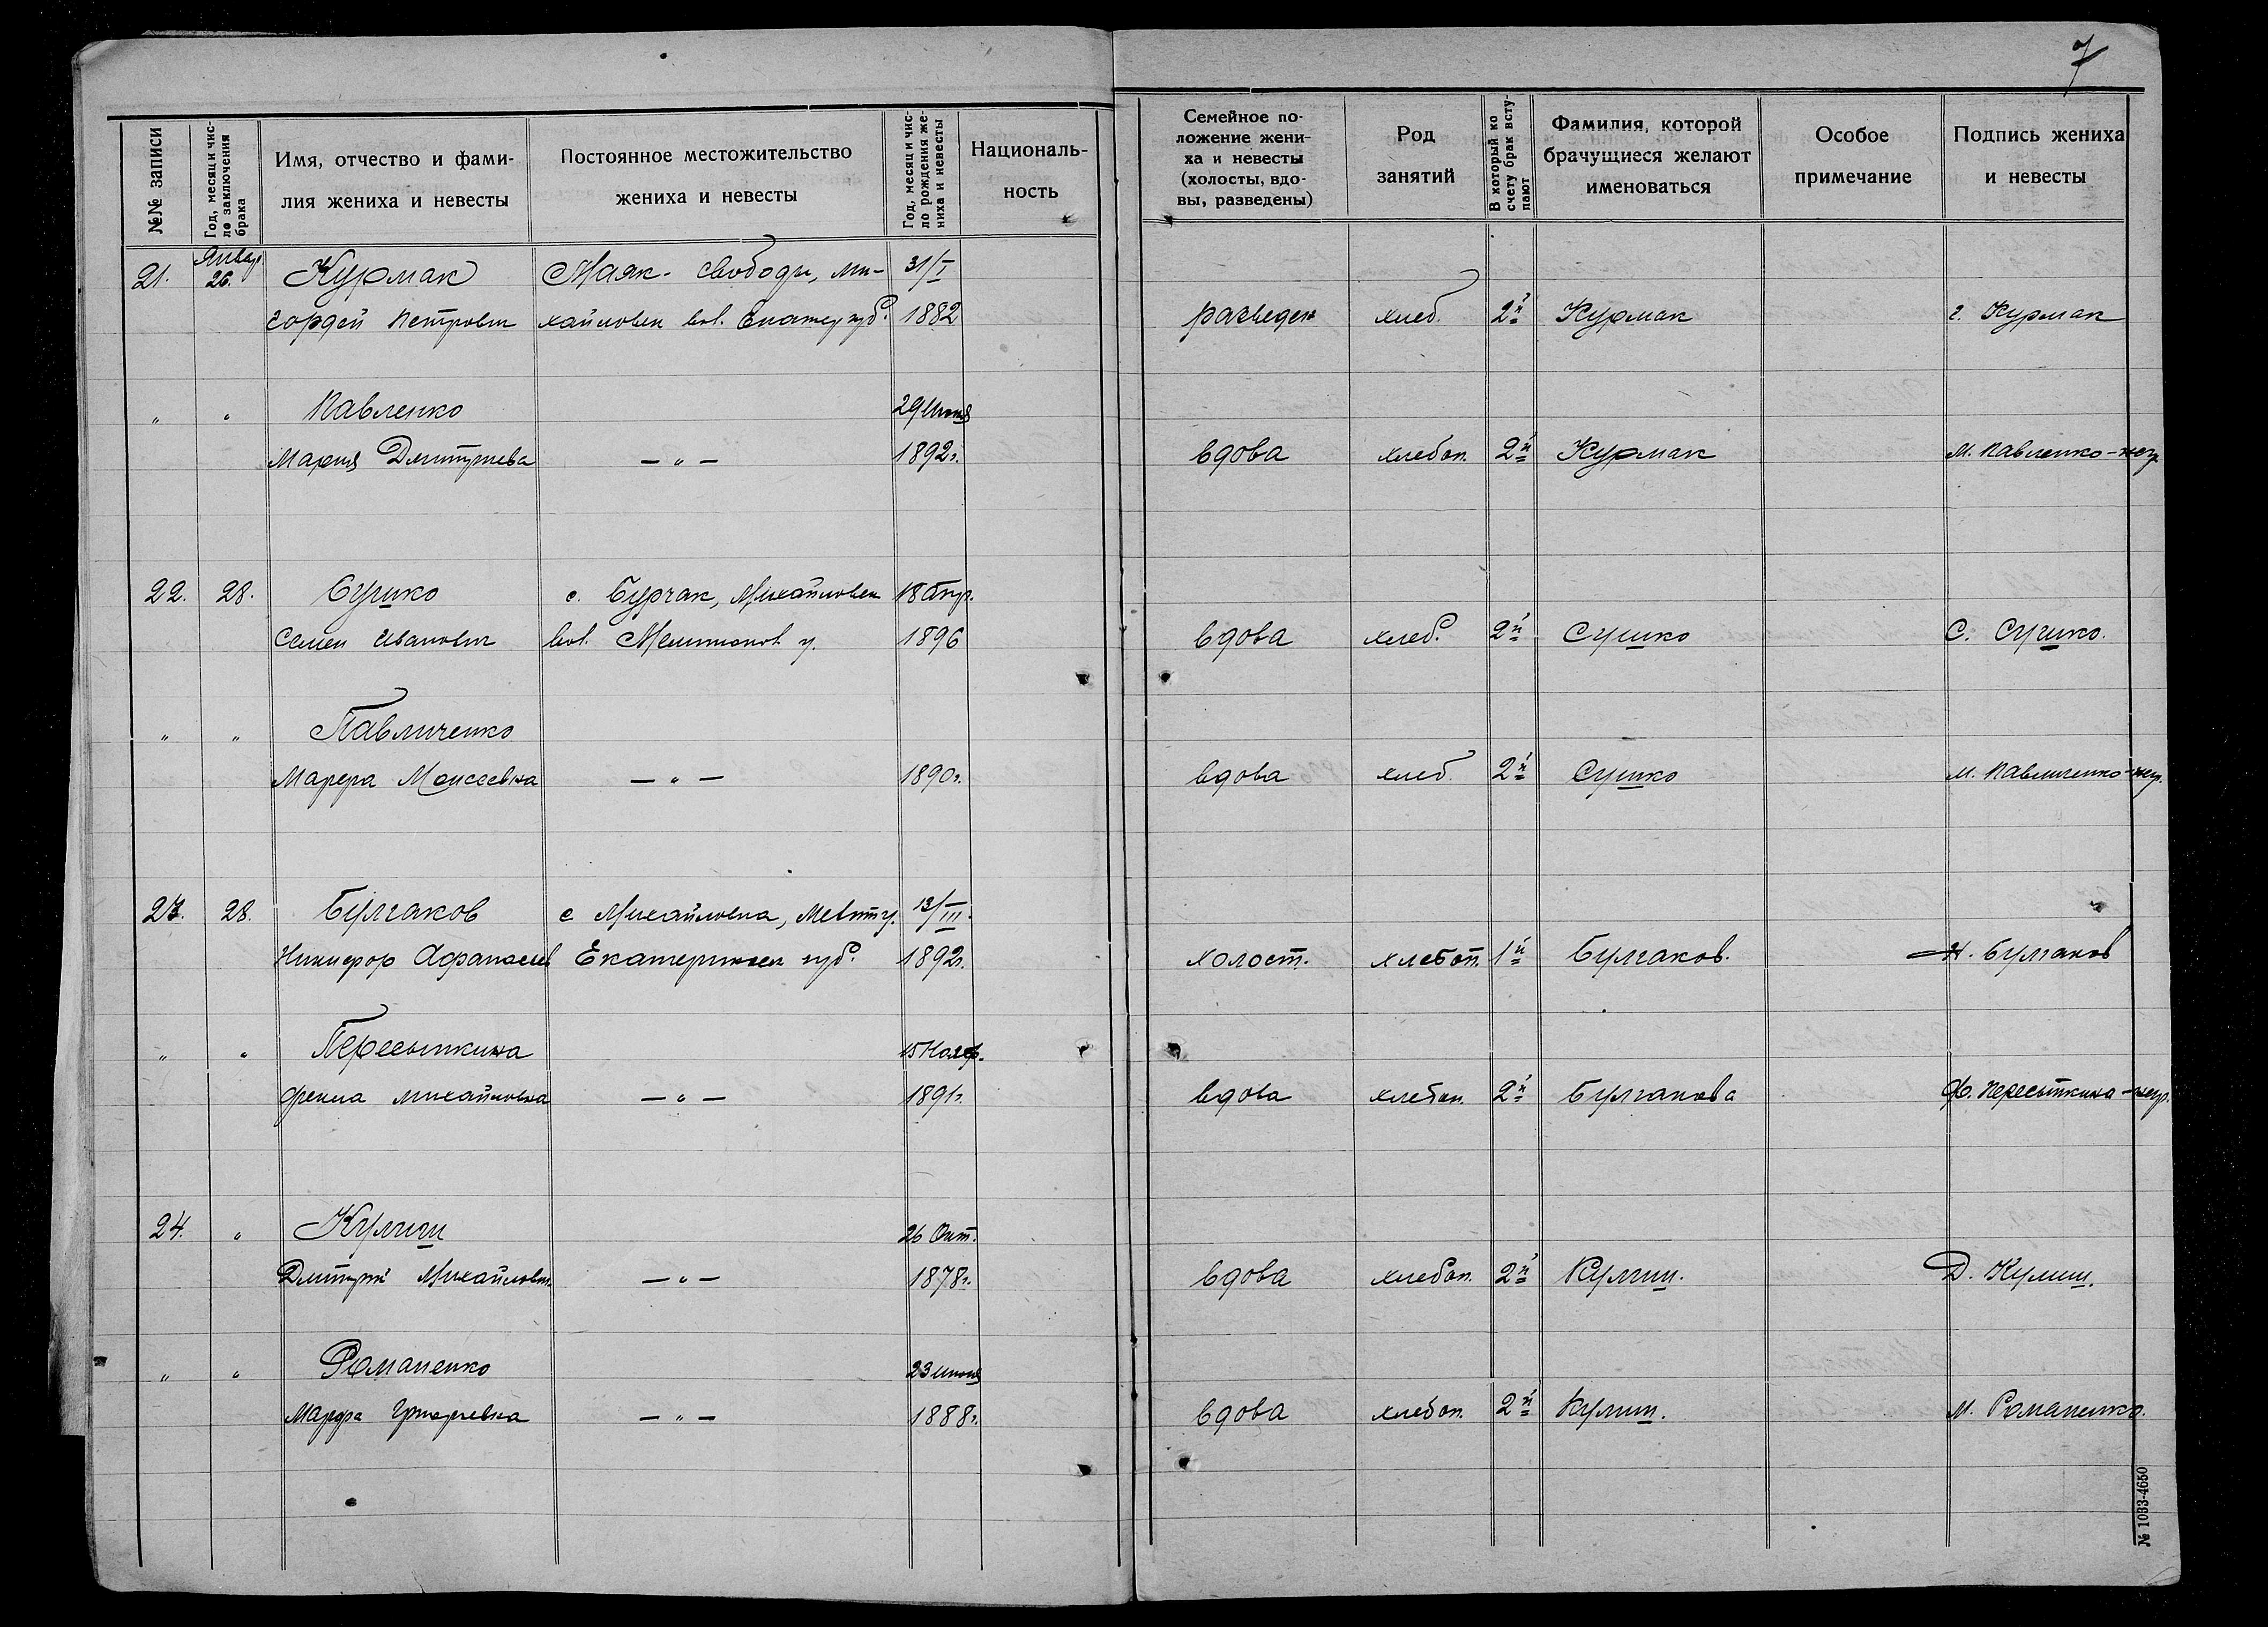 7
№№ записи
Год, месяц и чис-
ло заключения
брака
Имя, отчество и фами-
лия жениха и невесты
Постоянное местожительство
жениха и невесты
Год, месяц и чис-
ло рождения же-
ниха и невесты
Националь-
ность
Семейное по-
ложение жени-
ха и невесты
(холосты, вдо-
вы, разведены)
Род
занятий
В который ко
счету брак всту-
пают
Фамилия, которой
брачущиеся желают
именоваться
Особое
примечание
Подпись жениха
и невесты
21. Январ. 26. Курмак Маяк- свободы, Ми- 31/I
Гордей Петрович хайловск вол. Екатер губ. 1882 разведен хлеб. 2й Курмак Г. Курмак
" " Павленко 29
Мария Дмитриева — " — 1892г. вдова хлебоп. 2й Курмак М. Павленко-негр.
22. 28. Сушко с. Бурчак, Михайловск 18 Апр.
Семен Иванович вол. Мелитопол у. 1896 вдова хлеб. 2й Сушко С. Сушко.
" " Павличенко
Марфа Моисеевна — " — 1890г. вдова хлеб. 2й Сушко М. Павличенко-негр.
23. 28. Булгаков с Михайловка, Мелит у. 13/III.
Никифор Афанасиев Екатеринск губ. 1892г. холост. хлебоп. 1й Булгаков. Н. Булгаков
" " Пересыпкина 15 Нояб.
Фекла Михайловна — " — 1891г. вдова хлебоп. 2й Булгакова Ф. Пересыпкина-негр.
24. " Кулиш 26 Окт.
Дмитрий Михайлович — " — 1878г. вдова хлебоп. 2й Кулиш. Д. Кулиш.
" " Романенко 23 июня
Марфа Григорьевна — " — 1888г. вдова хлебоп. 2й Кулиш. М. Романенко.
№ 1033-4650